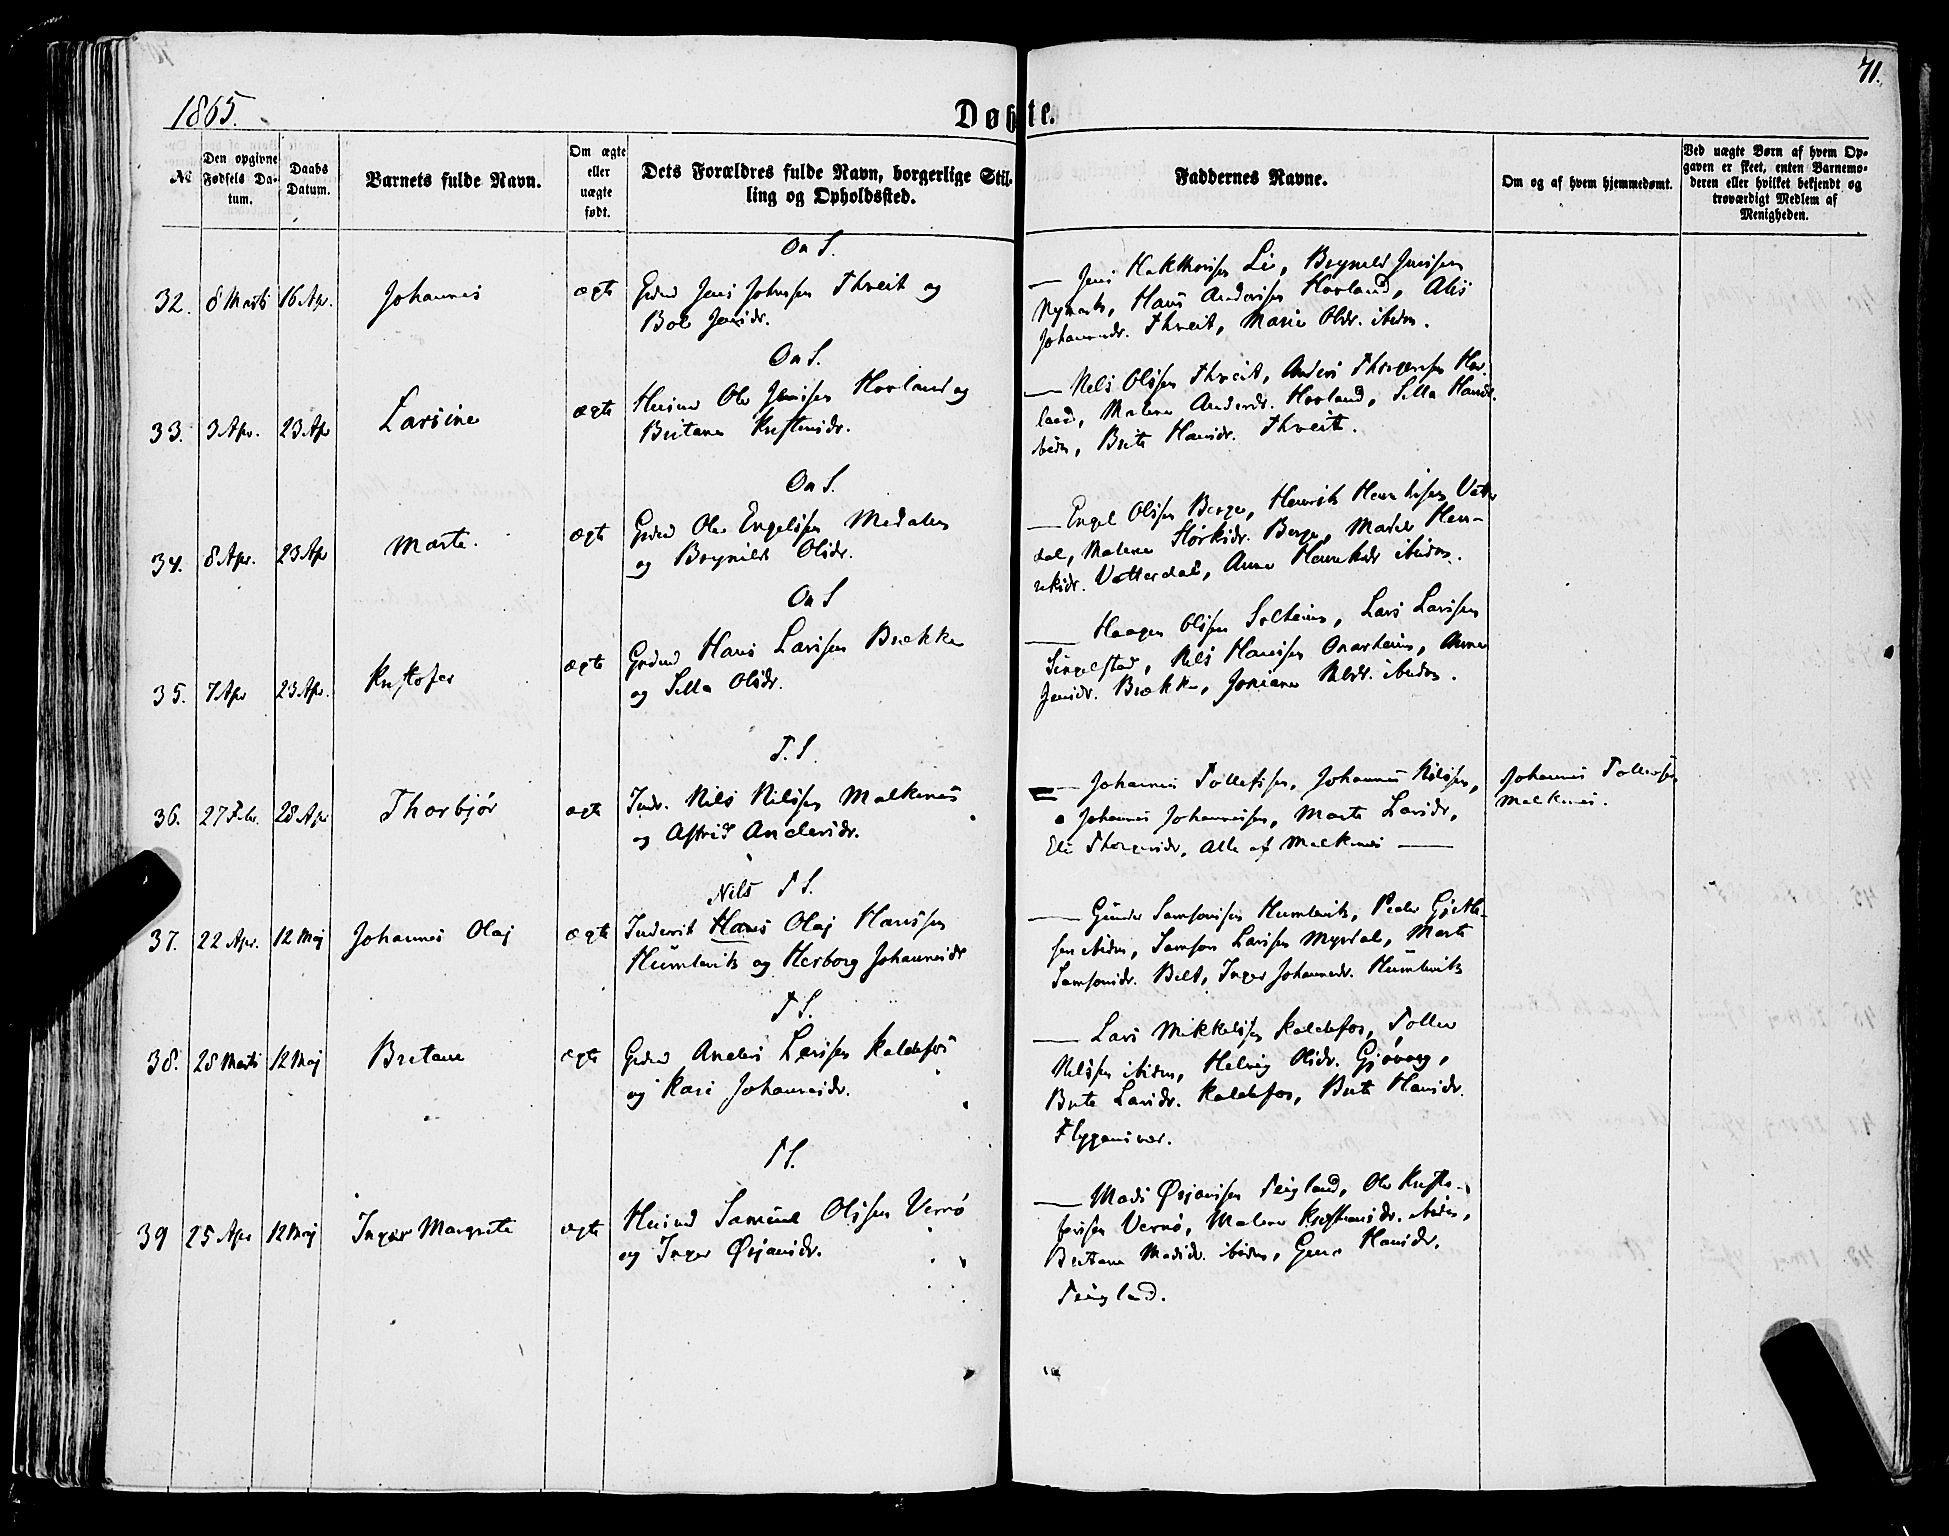 71.
1865.
Døbte.
№
Den opgivne Fødsels Datum.
Daabs Datum.
Barnets fulde Navn.
Om ægte eller uægte født.
Dets Forældres fulde Navn, borgerlige Stilling og Opholdssted.
Faddernes Navne.
Om og af hvem hjemmedømt.
Ved uægte Børn af hvem Opgaven er skeet, enten Barnemoderen eller hvilket bekjendt og troværdigt Medlem af Menigheden.
On S.
32. 8 Marts 16 Apr. Johannes ægte Grdmd Jens Johnsen Thveit og
Bol Jensdr.
— Jens Hakthorsen Li, Brynild Jensen
Nymark, Hans Andersen Hovland, Alis
Johannesdr. Thveit, Marie Olsdr. ibidm.
On S.
33. 3 Apr. 23 Apr Larsine ægte Husmd Ole Jensen Hovland og
Britane Kristensdr.
— Nels Olsen Thveit, Anders Thorgersen Hov-
land, Malene Andersdr. Hovland, Silla Hansdr.
ibidm, Brite Hansdr. Thveit.
On S.
34. 8 Apr. 23 Apr Marte. ægte Grdmd Ole Engelsen Medalen
og Brynild Olsdr.
— Engel Olsen Berge, Henrik Henriksen Vatter
dal, Malene Størksdr. Berge, Marte Hen-
riksdr. Vatterdal, Anne Henriksdr ibidm.
On S
35. 7 Apr 23 Apr. Kristofer ægte Grdmd Hans Larsen Brekke
og Silla Olsdr.
— Haagen Olsen Solheim, Lars Larsen
Singelstad, Nils Hansen Onarheim, Anne
Jensdr. Brekke, Joriane Nilsdr. ibidm.
T. S.
36. 27 Febr. 28 Apr Thorbjør ægte Inds. Nils Nilsen Malkenes
og Astrid Andersdr.
— Johannes Tollefsen, Johannes Nilsen,
Johannes Johannessen, Marte Larsdr,
Eli Thorgersdr, Alle af Malkenes —
Johannes Tollefsen
Malkenes.
Nils T S.
37. 22 Apr. 12 Maj Johannes Olaj ægte Inderst Hans Olaj Hansen
Humlevik og Herborg Johannesdr
— Gunder Samsonsen Humlevik, Peder Gjertsen
ibidm, Samson Larsen Myrdal, Marte
Samsonsdr. Belt, Inger Johannesdr. Humlevik
T S.
38. 28 Marts 12 Maj Britane ægte Grdmd Anders Larsen Kaldefos
og Kari Johannesdr.
— Lars Mikkelsen Kaldefos, Tollev
Nilsen ibidm, Helvig Olsdr. Gjøvaag,
Brite Larsdr. Kaldefos, Brite Hansdr.
Flygansvær.
T S.
39 25 Apr 12 Maj Inger Margrete ægte Husmd Samuel Olsen Vernø
og Inger Ørjansdr.
— Mads Ørjansen Teigland, Ole Kristo-
fersen Vernø, Malene Kristensdr. ibidm,
Britane Madsdr. ibidm, Guro Hansdr.
Teigland.